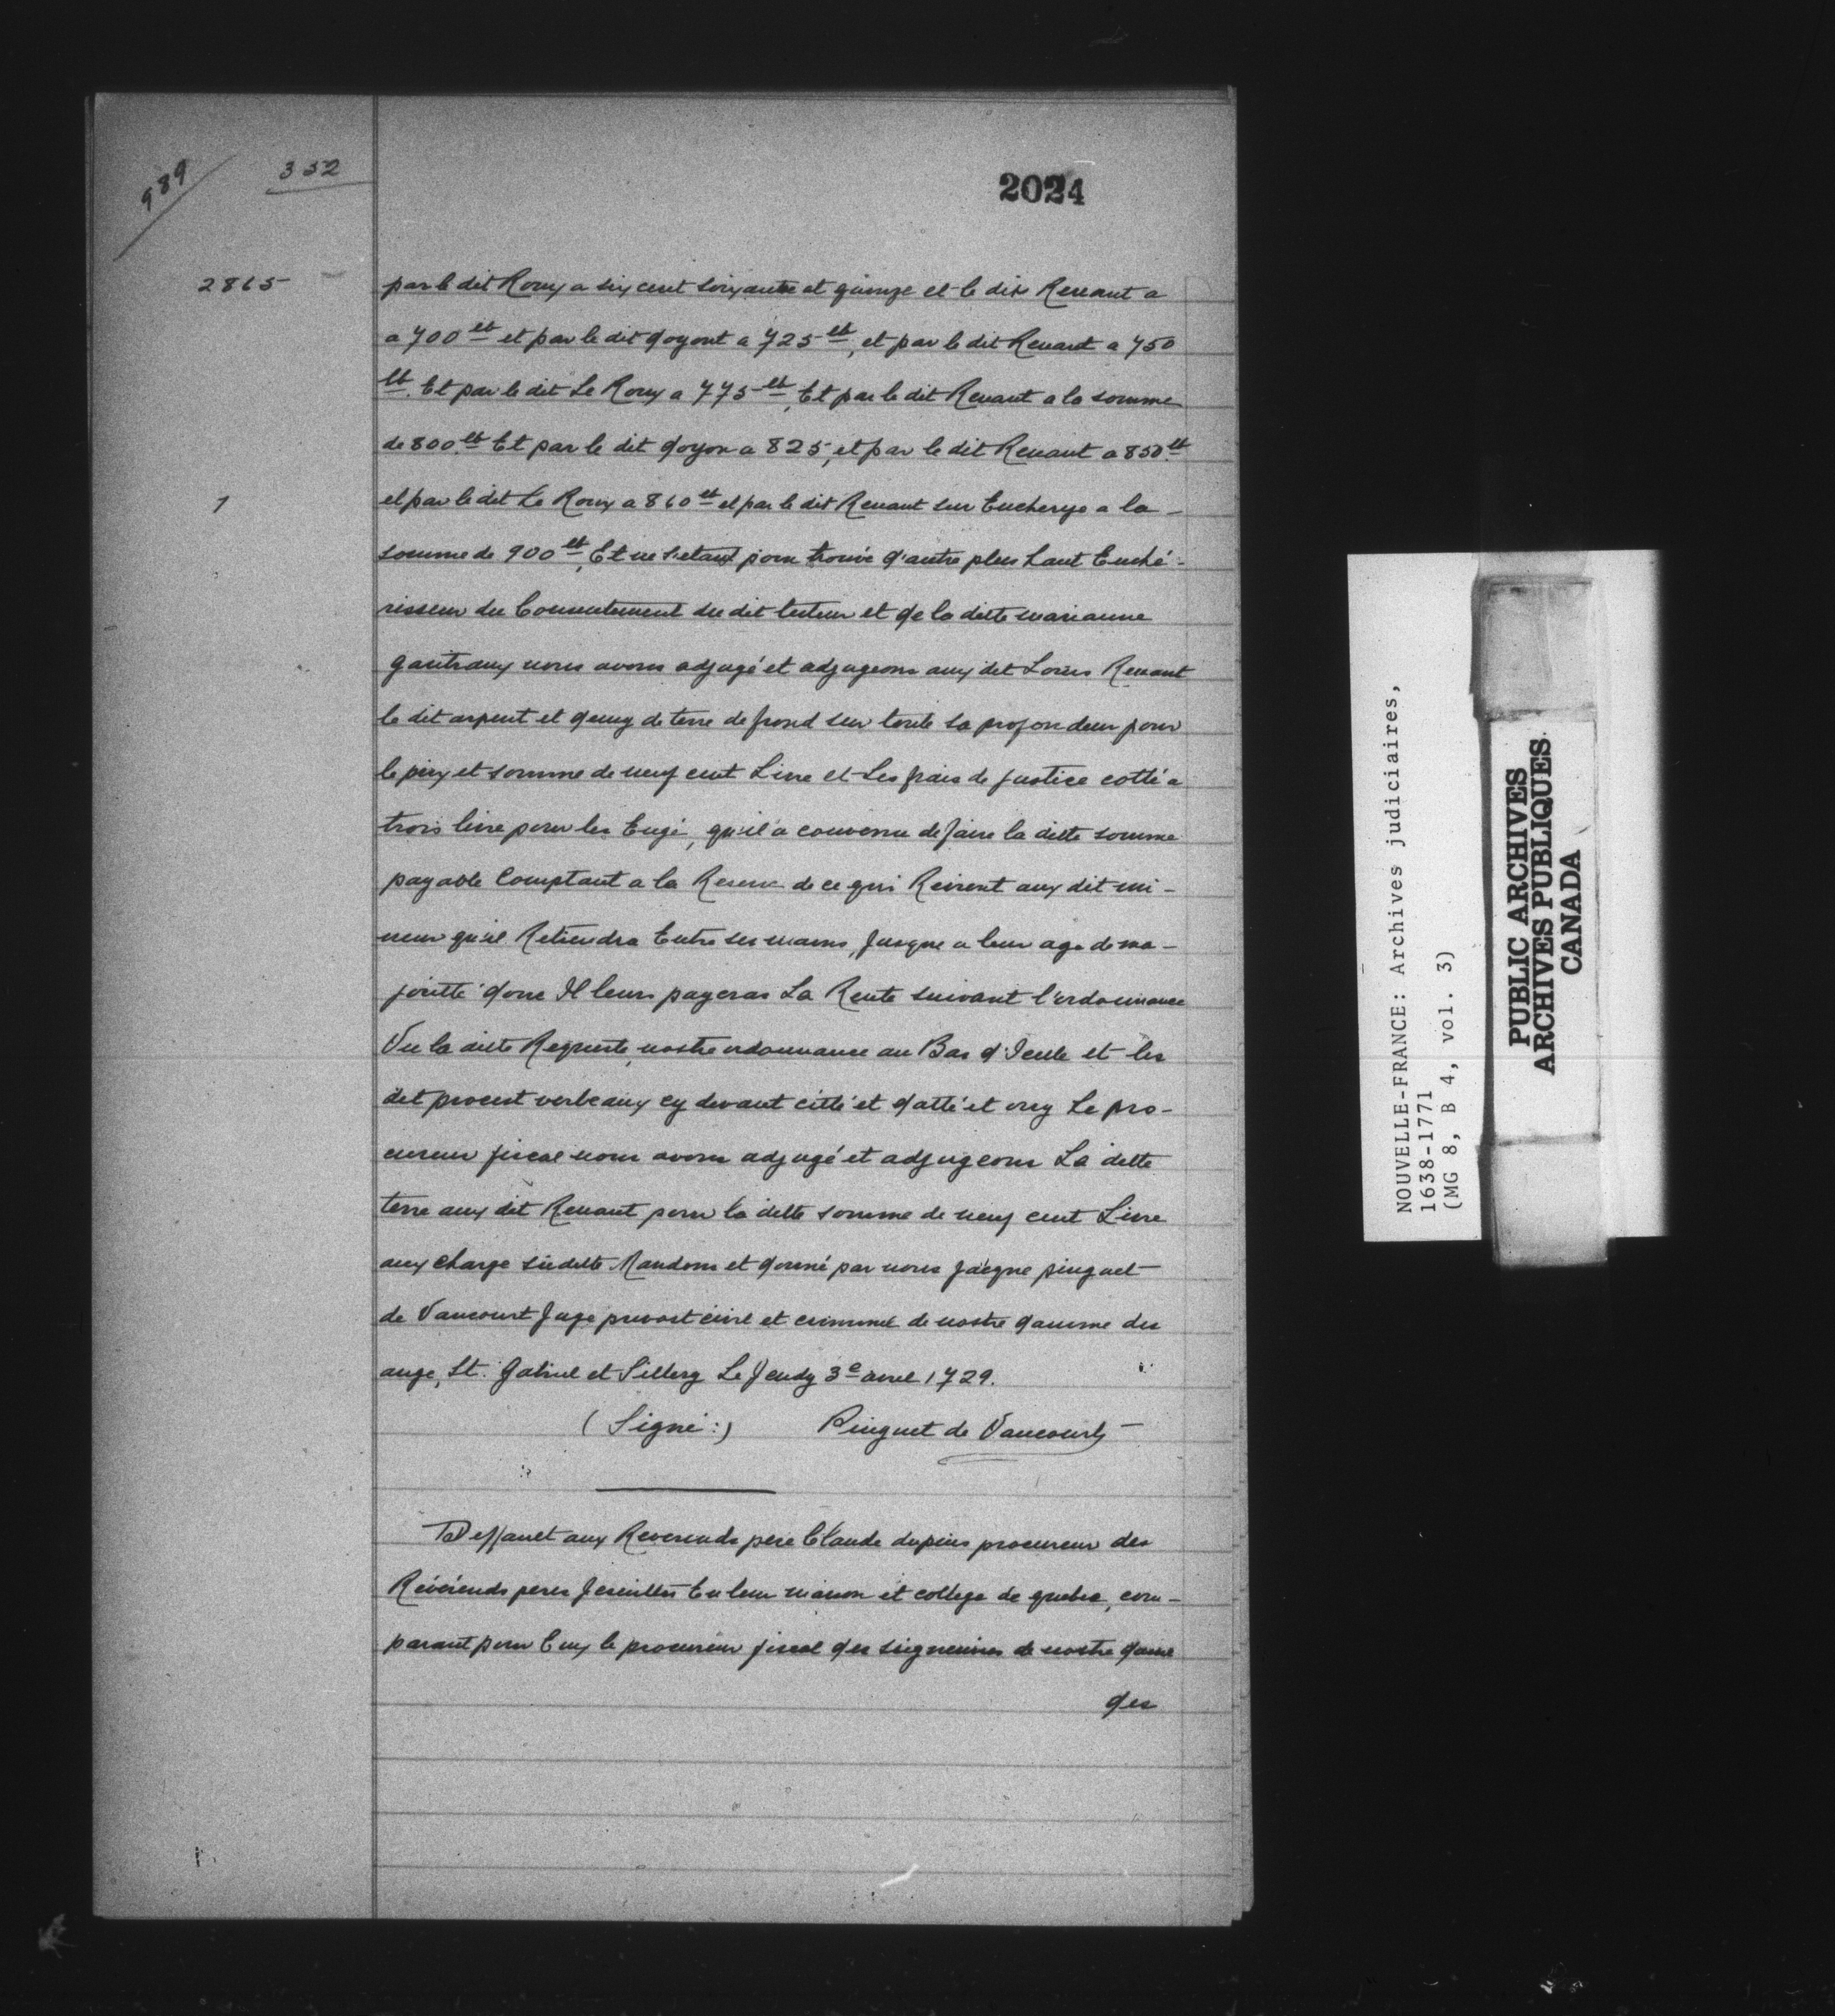 989
352
2024
2865
par le dit Roux a six cent soixante et quinze et le dit Renaut a
a 700 lt et par le dit doyont a 725 lt, et par le dit Renaut a 750
lt. Et par le dit Le Roux a 775 lt, Et par le dit Renaut a la somme
de 800 lt Et par le dit doyon a 825, et par le dit Renaut a 850 lt
1
et par le dit Le Roux a 860 lt et par le dit Renaut sur Encherye a la
somme de 900 lt, Et ne s'etant poin trouvé d'autre plus haut Enché-
risseur du Consentement du dit tuteur et de la ditte marianne
gautraux nous avons adjugé et adjugeons aux dit Louis Renaut
le dit arpent et demy de terre de frond sur toute sa profondeur pour
le prix et somme de neuf cent Livre et Les frais de justice cotté a
trois livre pour les Eugé, qu'il a convenu de faire la ditte somme
payable Comptant a la Reserve de ce qui Reivent aux dit mi-
neur qu'il Retiendra Entre ses mains, Jusque a leur age de ma-
joritté done Il leurs payeras La Rente suivant l'ordonnance
Vu la ditte Requeste, nostre ordonnance au Bas d'Icelle et les
dit procest verbeaux cy devant citté et datté et ouy Le pro-
cureur fiscal nous avons adjugé et adjugeons La ditte
terre aux dit Renaut pour la ditte somme de neuf cent Livre
aux charge süditte Mandons et donné par nous Jacque pinguet
de Vaucourt Juge prevost civil et criminel de nostre damme des
ange, St. Gabriel et Sillery Le Jeudy 3e avril 1729.
(Signé:) Pinguet de Vaucourt
Deffanet aux Reverends pere Claude dupuis procureur des
Révérends peres Jesuittes En leur maison et college de quebec, com-
parant pour Eux le procureur fiscal des seigneuries de nostre dame
des
NOUVELLE-FRANCE: Archives judiciaires,
1638-1771
(MG 8, B 4, vol. 3)
PUBLIC ARCHIVES
ARCHIVES PUBLIQUES
CANADA